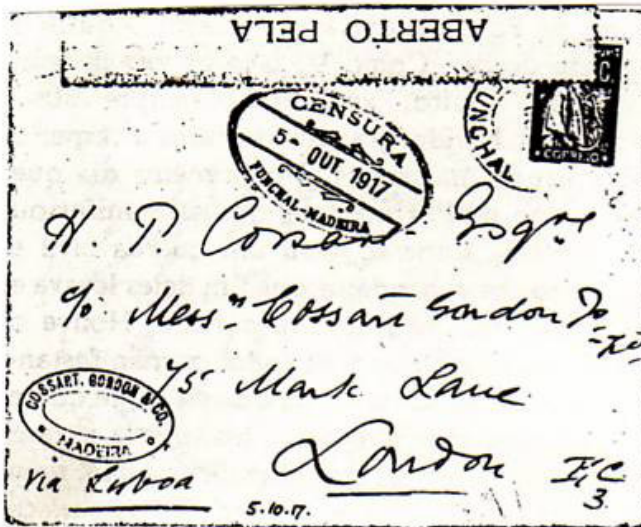 ABERTO PELA
CENSURA
5- OUT. 1917
FUNCHAL-MADEIRA
FUNCHAL
CORREIO
H. P. Cossart Esqre
c/o Messrs Cossart Gordon &
75 Mark Lane
COSSART, GORDON & CO.
MADEIRA
London
via Lisboa
5.10.17.
3